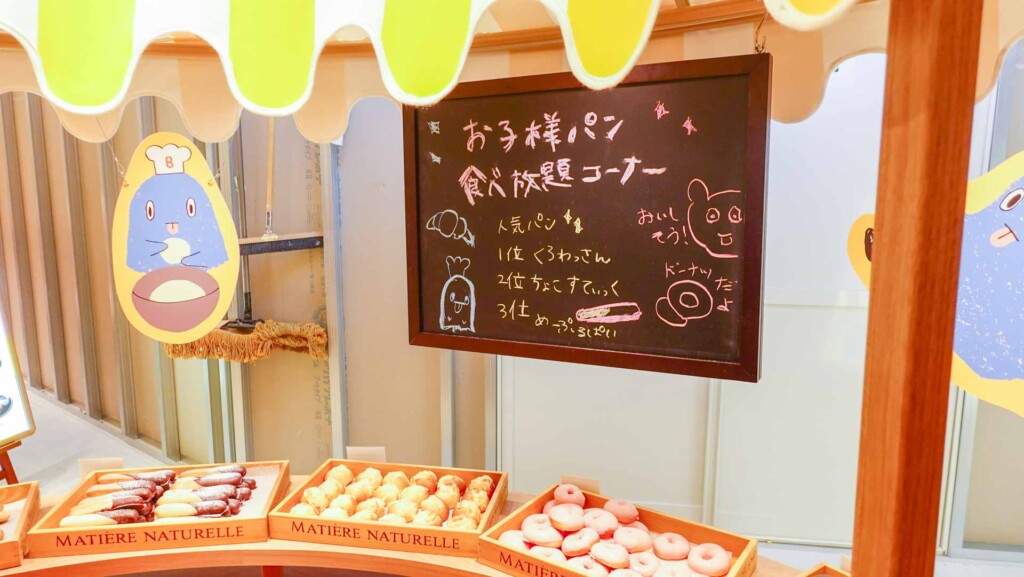 お子様パン
食べ放題コーナー
人気パン
1位 くろわっさん
2位 ちょこすてぃっく
3位 めーぷるぱい
おいし
そう!
ドーナツだよ
B
MATIÈRE NATURELLE
MATIÈRE NATURELLE
MATIÈRE